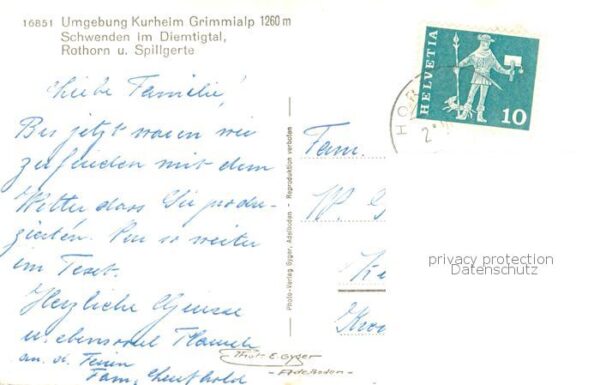 16851 Umgebung Kurheim Grimmialp 1260 m
Schwenden im Diemtigtal,
Rothorn u. Spillgerte
Liebe Familie!
Bis jetzt waren wir
zufrieden mit dem
Wetter dass Sie produ-
zierten. Nur so weiter
im Text.
Herzliche Grüsse
u. ebensoviel
an d. Ferien
Fam.
Photo-Verlag Gyger, Adelboden - Reproduktion verboten
Photo E. Gyger
- Adelboden -
HELVETIA
10
HOR
2
Fam.
W. G
privacy protection
Datenschutz